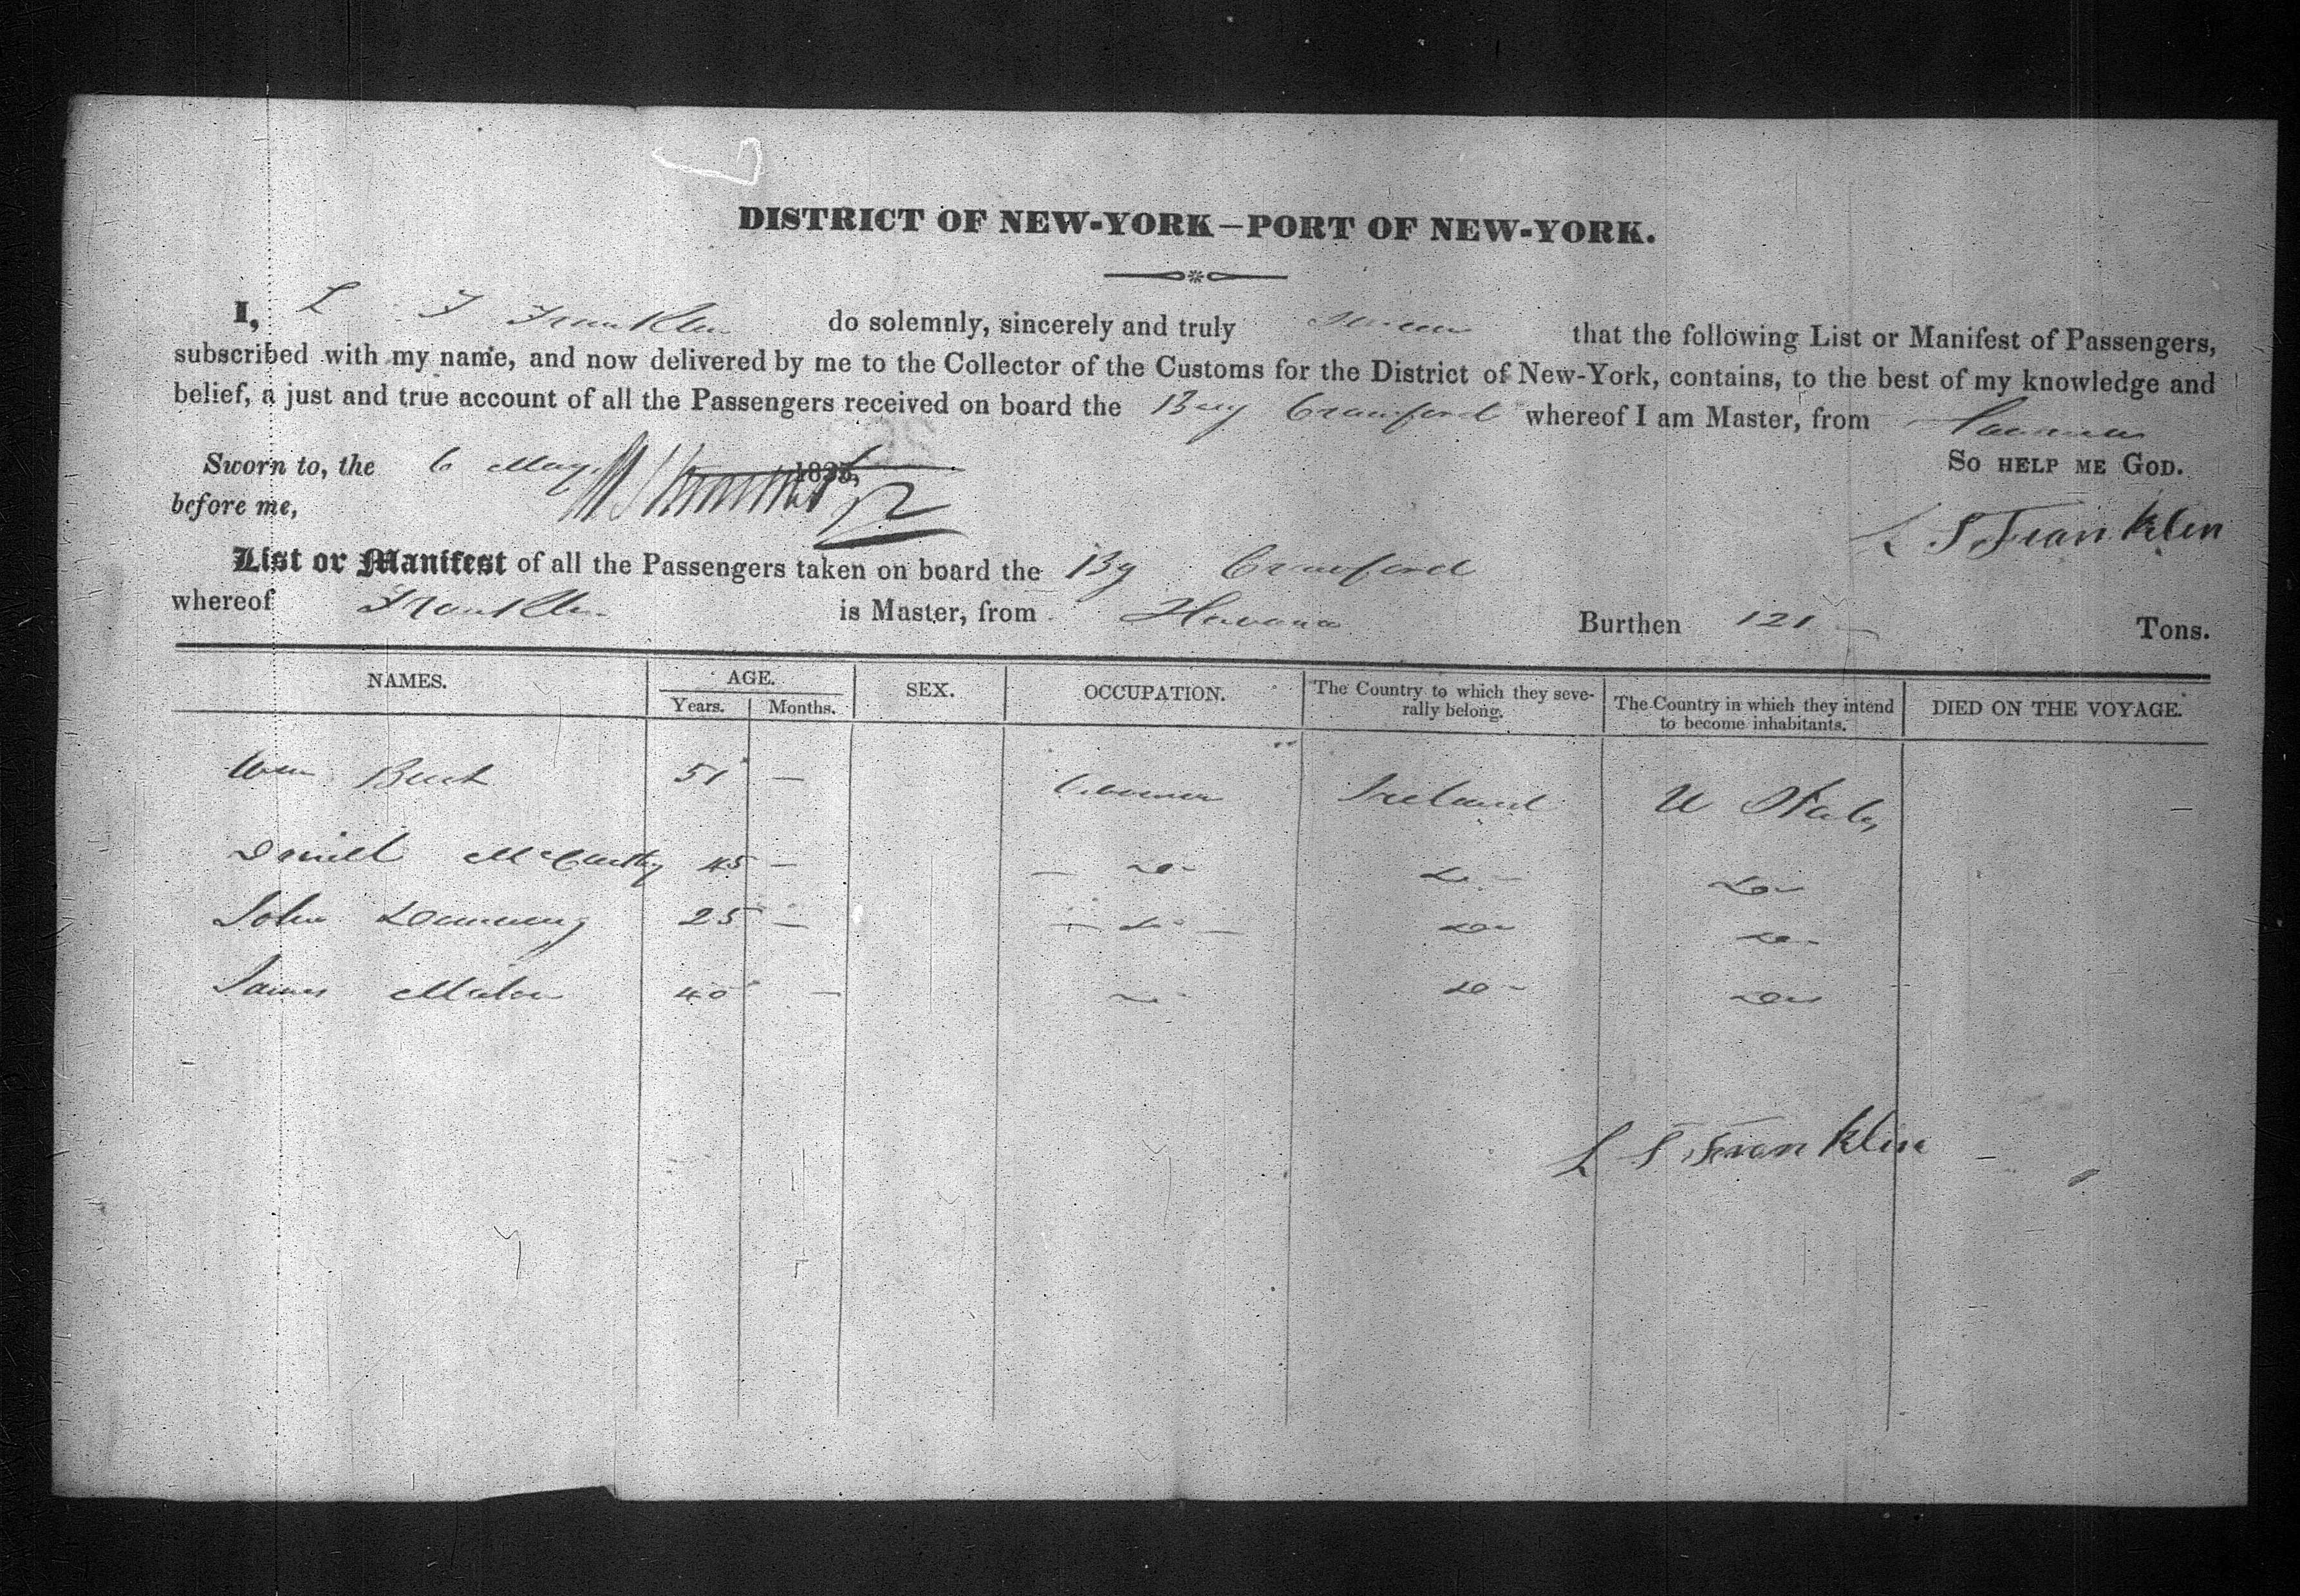 DISTRICT OF NEW-YORK—PORT OF NEW-YORK.
I, L S Franklin do solemnly, sincerely and truly swear that the following List or Manifest of Passengers,
subscribed with my name, and now delivered by me to the Collector of the Customs for the District of New-York, contains, to the best of my knowledge and
belief, a just and true account of all the Passengers received on board the Brig Crawford whereof I am Master, from
So HELP ME GOD.
Sworn to, the 6 May 183
before me,
L S Franklin
List or Manifest of all the Passengers taken on board the Bg Crawford
whereof Franklin is Master, from Havana Burthen 121 Tons.
NAMES. AGE. SEX. OCCUPATION. The Country to which they severally belong. The Country in which they intend to become inhabitants. DIED ON THE VOYAGE.
Years. Months.
Wm 51 — Ireland U States
Daniel McCarthy 45 — Do Do Do
John 25 — Do Do Do
James 40 — Do Do Do
L S Franklin